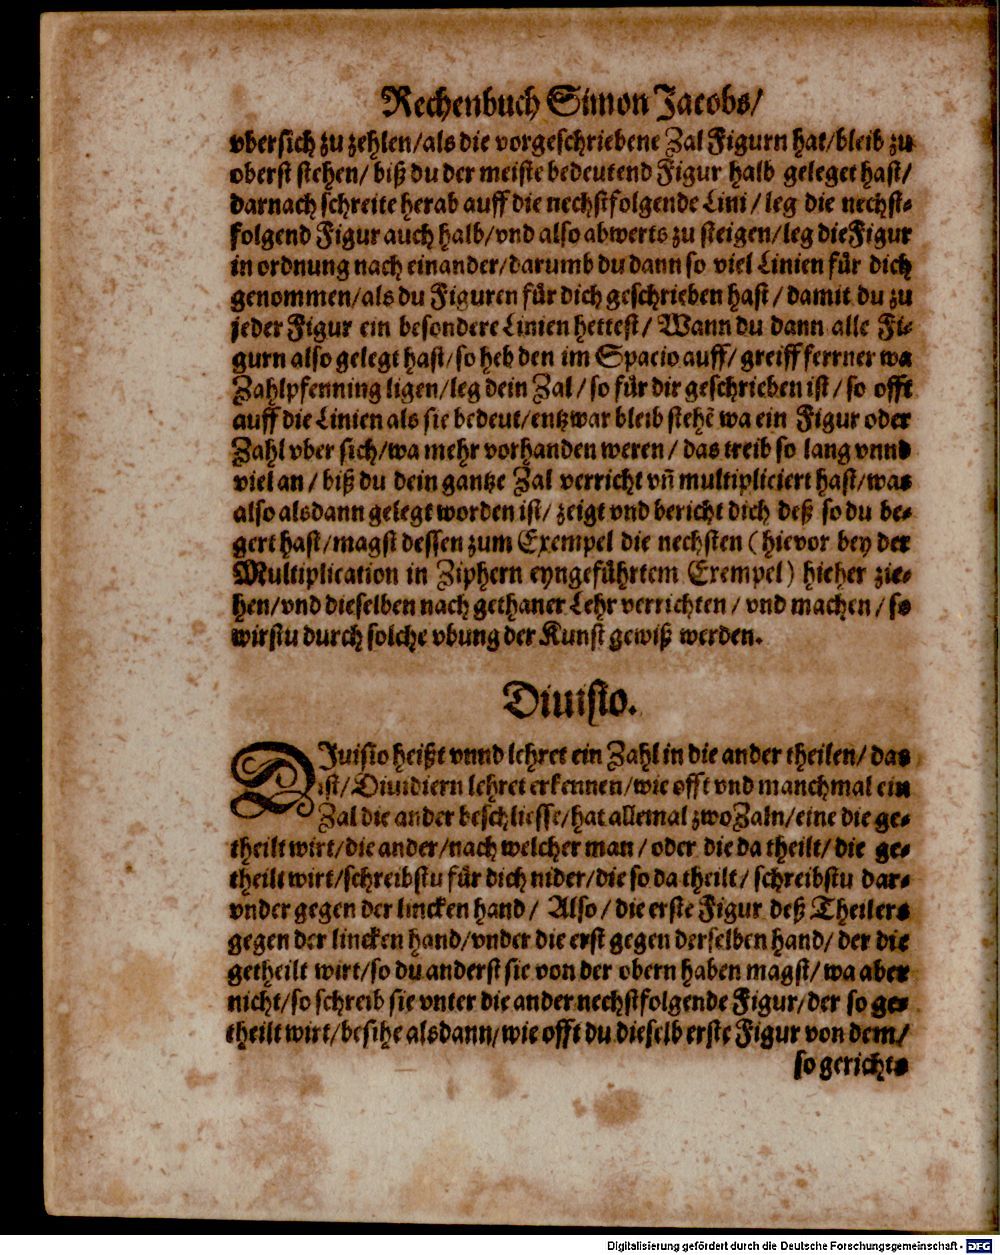 Rechenbuch Simon Jacobs/
vbersich zu zehlen/als die vorgeschriebene Zal Figurn hat/bleib zu
oberst stehen/ biß du der meiste bedeutend Figur halb geleget hast/
darnach schreite herab auff die nechstfolgende Lini/ leg die nechst-
folgend Figur auch halb/vnd also abwerts zu steigen/leg die Figur
in ordnung nach einander/darumb du dann so viel Linien für dich
genommen/als du Figuren für dich geschrieben hast/ damit du zu
jeder Figur ein besondere Linien hettest/ Wann du dann alle Fi-
gurn also gelegt hast/so heb den im Spacio auff/ greiff ferrner wa
Zahlpfenning ligen/leg dein Zal/ so für dir geschrieben ist/ so offt
auff die Linien als sie bedeut/entzwar bleib stehē wa ein Figur oder
Zahl vber sich/wa mehr vorhanden weren/ das treib so lang vnnd
viel an/ biß du dein gantze Zal verricht vn̄ multipliciert hast/was
also alsdann gelegt worden ist/ zeigt vnd bericht dich deß so du be-
gert hast/magst dessen zum Exempel die nechsten (hievor bey der
Multiplication in Ziphern eyngeführtem Exempel) hieher zie-
hen/vnd dieselben nach gethaner Lehr verrichten/ vnd machen/ so
wirstu durch solche vbung der Kunst gewiß werden.
Diuisio.
DIuisio heißt vnnd lehret ein Zahl in die ander theilen/ das
ist/ Diuidiern lehret erkennen/wie offt vnd manchmal ein
Zal die ander beschliesse/hat allemal zwo Zaln/eine die ge-
theilt wirt/die ander/nach welcher man/ oder die da theilt/ die ge-
theilt wirt/schreibstu für dich nider/die so da theilt/ schreibstu dar-
vnder gegen der lincken hand/ Also/ die erste Figur deß Theilers
gegen der lincken hand/vnder die erst gegen derselben hand/ der die
getheilt wirt/so du anderst sie von der obern haben magst/ wa aber
nicht/so schreib sie vnter die ander nechstfolgende Figur/der so ge-
theilt wirt/besihe alsdann/wie offt du dieselb erste Figur von dem/
so gerichts
Digitalisierung gefördert durch die Deutsche Forschungsgemeinschaft - DFG